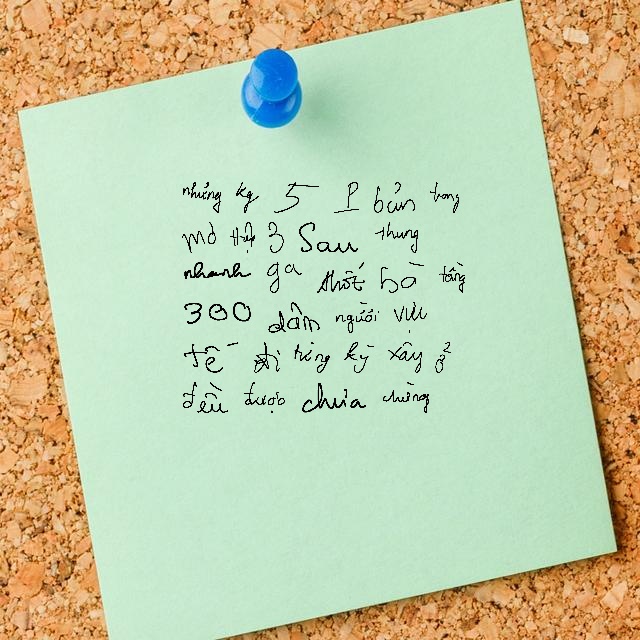 những kg 5 P bún trong
mò thấp 3 Sau thung
nhanh ga thốt bò tầng
300 dân người vực
tế đi từng kỳ xây ở
đều được chưa chừng